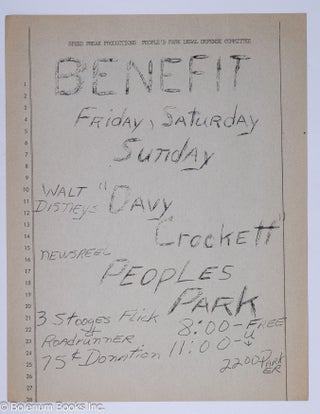 SPEED FREAK PRODUCTIONS PEOPLE'S PARK LEGAL DEFENSE COMMITTEE
BENEFIT
FRIDAY, SATURDAY
SUNDAY
WALT "DAVY
DISNEYS
CROCKETT"
NEWSREEL
PEOPLES
PARK
3 STOOGES FLICK
8:00 - FREE
ROADRUNNER
U
75¢ DONATION
11:00
1
2
3
4
5
6
7
8
9
10
11
12
13
14
15
16
17
18
19
20
21
22
23
24
25
26
27
28
© Bolerium Books Inc.